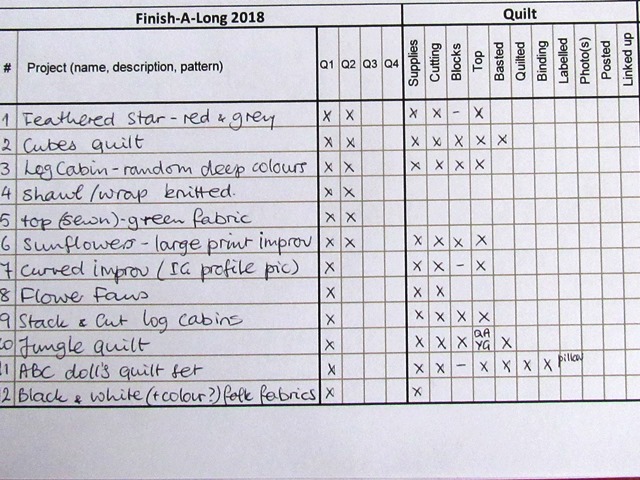 Finish-A-Long 2018 Quilt
# Project (name, description, pattern) Q1 Q2 Q3 Q4 Supplies Cutting Blocks Top Basted Quilted Binding Labelled Photo(s) Posted Linked up
1 Feathered Star - red & grey x x x x - x
2 Cubes quilt x x x x x x x
3 Log Cabin - random deep colours x x x x x x
4 shawl / wrap knitted. x x
5 top (sewn) - green fabric x x
6 Sunflowers - large print improv x x x x x x
7 Curved improv (IG profile pic) x x x - x
8 Flowe Fans x x x
9 Stack & Cut log cabins x x x x x
0 Jungle quilt x x x x QA YG x
1 ABC doll's quilt set x x x - x x x x pillow
2 Black & white (+colour?) folk fabrics x x